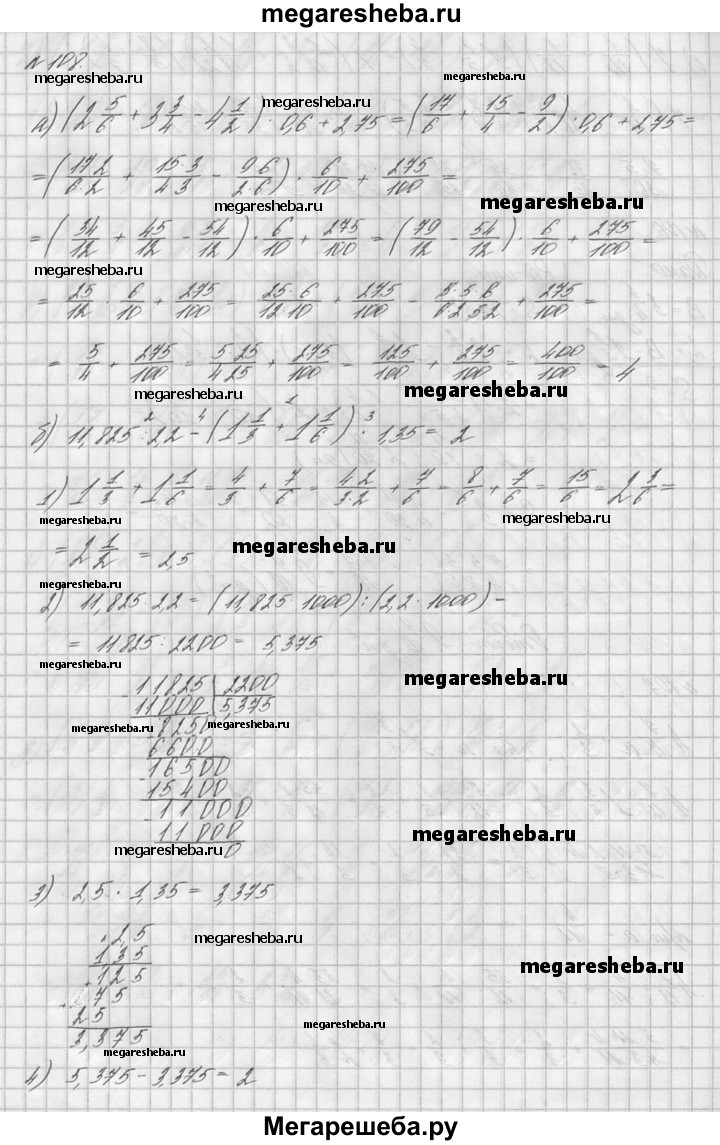 megaresheba.ru
№ 108.
megaresheba.ru megaresheba.ru
а) (2 5/6 + 3 3/4 - 4 1/2) · 0,6 + 2,75 = (17/6 + 15/4 - 9/2) · 0,6 + 2,75 =
megaresheba.ru
= (17·2/6·2 + 15·3/4·3 - 9·6/2·6) · 6/10 + 275/100 =
megaresheba.ru megaresheba.ru
= (34/12 + 45/12 - 54/12) · 6/10 + 275/100 = (79/12 - 54/12) · 6/10 + 275/100 =
megaresheba.ru
= 25/12 · 6/10 + 275/100 = 25·6/12·10 + 275/100 = 5·5·6/6·2·5·2 + 275/100 =
= 5/4 + 275/100 = 5·25/4·25 + 275/100 = 125/100 + 275/100 = 400/100 = 4
megaresheba.ru megaresheba.ru
б) 11,825 : 2,2 - (1 1/3 + 1 1/6) · 1,35 = 2
1) 1 1/3 + 1 1/6 = 4/3 + 7/6 = 4·2/3·2 + 7/6 = 8/6 + 7/6 = 15/6 = 2 3/6 =
megaresheba.ru megaresheba.ru
= 2 1/2 = 2,5
megaresheba.ru
megaresheba.ru
2) 11,825 : 2,2 = (11,825 · 1000) : (2,2 · 1000) =
= 11825 : 2200 = 5,375
megaresheba.ru megaresheba.ru
- 11825 | 2200
11000 | 5,375
megaresheba.ru 8250 megaresheba.ru
6600
- 16500
15400
- 11000
11000
megaresheba.ru 0 megaresheba.ru
3) 2,5 · 1,35 = 3,375
2,5
megaresheba.ru
1 3 5
+ 125
megaresheba.ru
+ 75
25
megaresheba.ru
3,375
megaresheba.ru
4) 5,375 - 3,375 = 2
Мегарешеба.ру